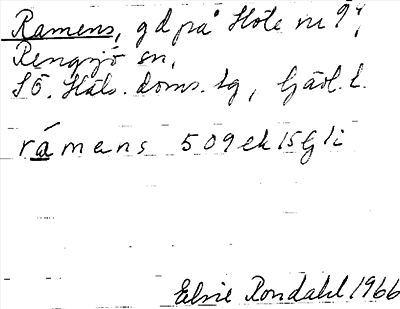 Ramens, gd på Höle nr 9⁴,
Rengsjö sn,
SÖ. Häls. doms. tg, Gävl. l.
rámens 509 ek 15 G li
Elsie Rondahl 1966